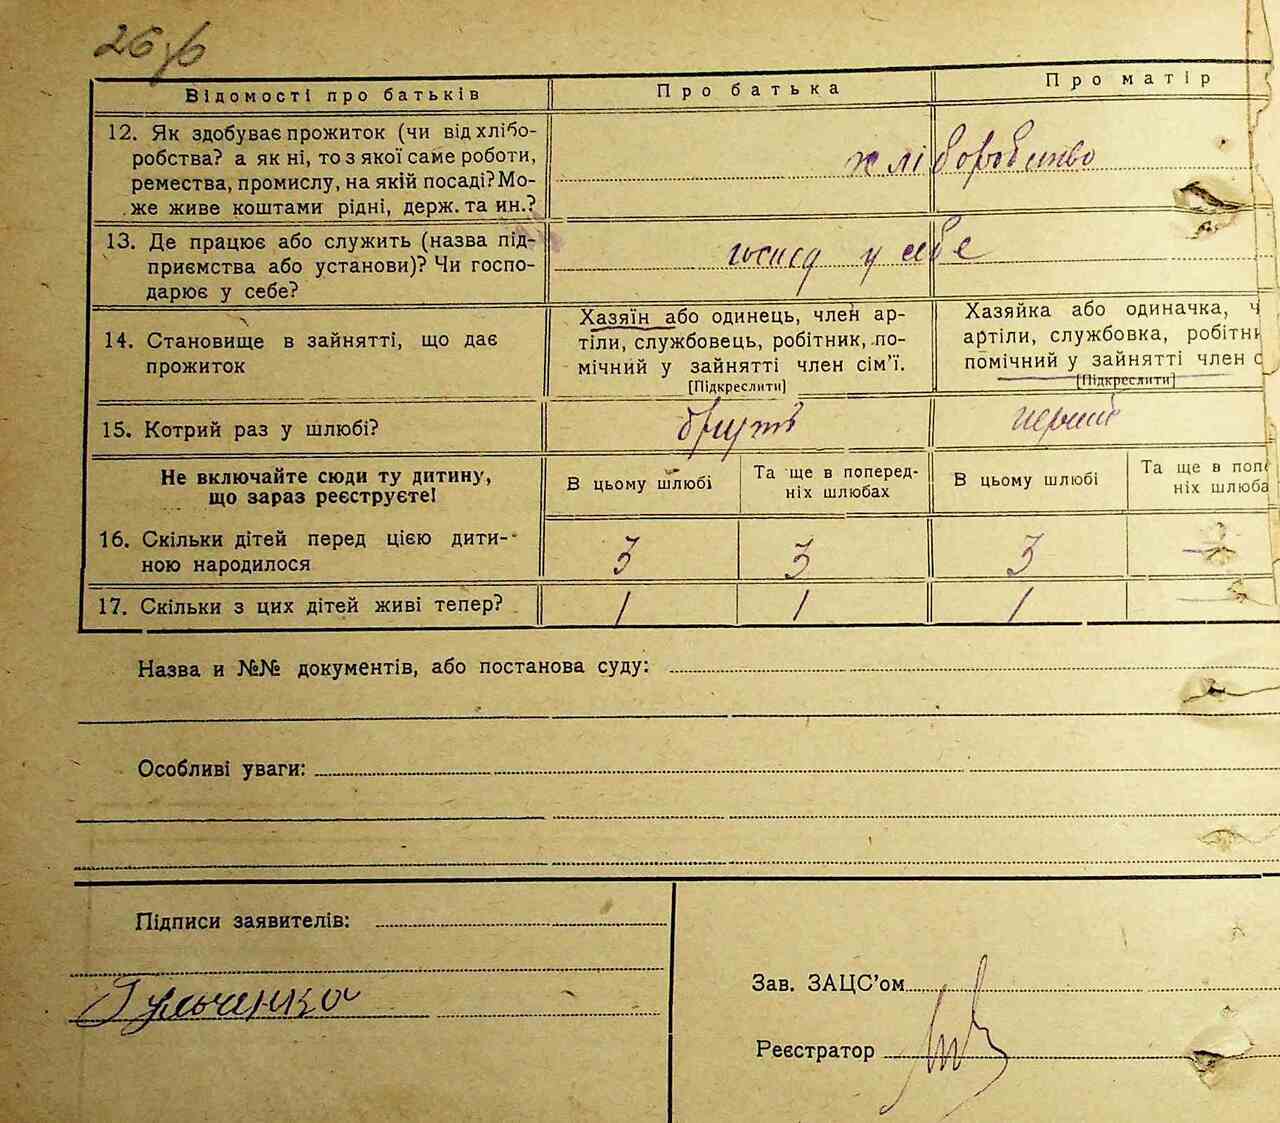 26
Відомості про батьків
Про батька
Про матір
12. Як здобуває прожиток (чи від хлібо-
робства? а як ні, то з якої саме роботи,
ремества, промислу, на якій посаді? Мо-
же живе коштами рідні, держ. та ин.?
хліборобство
13. Де працює або служить (назва під-
приємства або установи)? Чи госпо-
дарює у себе?
господ у себе
14. Становище в зайнятті, що дає
прожиток
Хазяїн або одинець, член ар-
тіли, службовець, робітник, по-
мічний у зайнятті член сім'ї.
[Підкреслити]
Хазяйка або одиначка, ч
артіли, службовка, робітни
помічний у зайнятті член с
[Підкреслити]
15. Котрий раз у шлюбі?
другий
перший
Не включайте сюди ту дитину,
що зараз реєструєте!
В цьому шлюбі
Та ще в поперед-
ніх шлюбах
В цьому шлюбі
Та ще в попе
ніх шлюба
16. Скільки дітей перед цією дити-
ною народилося
3 3 3 —
17. Скільки з цих дітей живі тепер?
1 1 1 —
Назва и №№ документів, або постанова суду:
Особливі уваги:
Підписи заявителів:
Гульченко
Зав. ЗАЦС'ом
Реєстратор